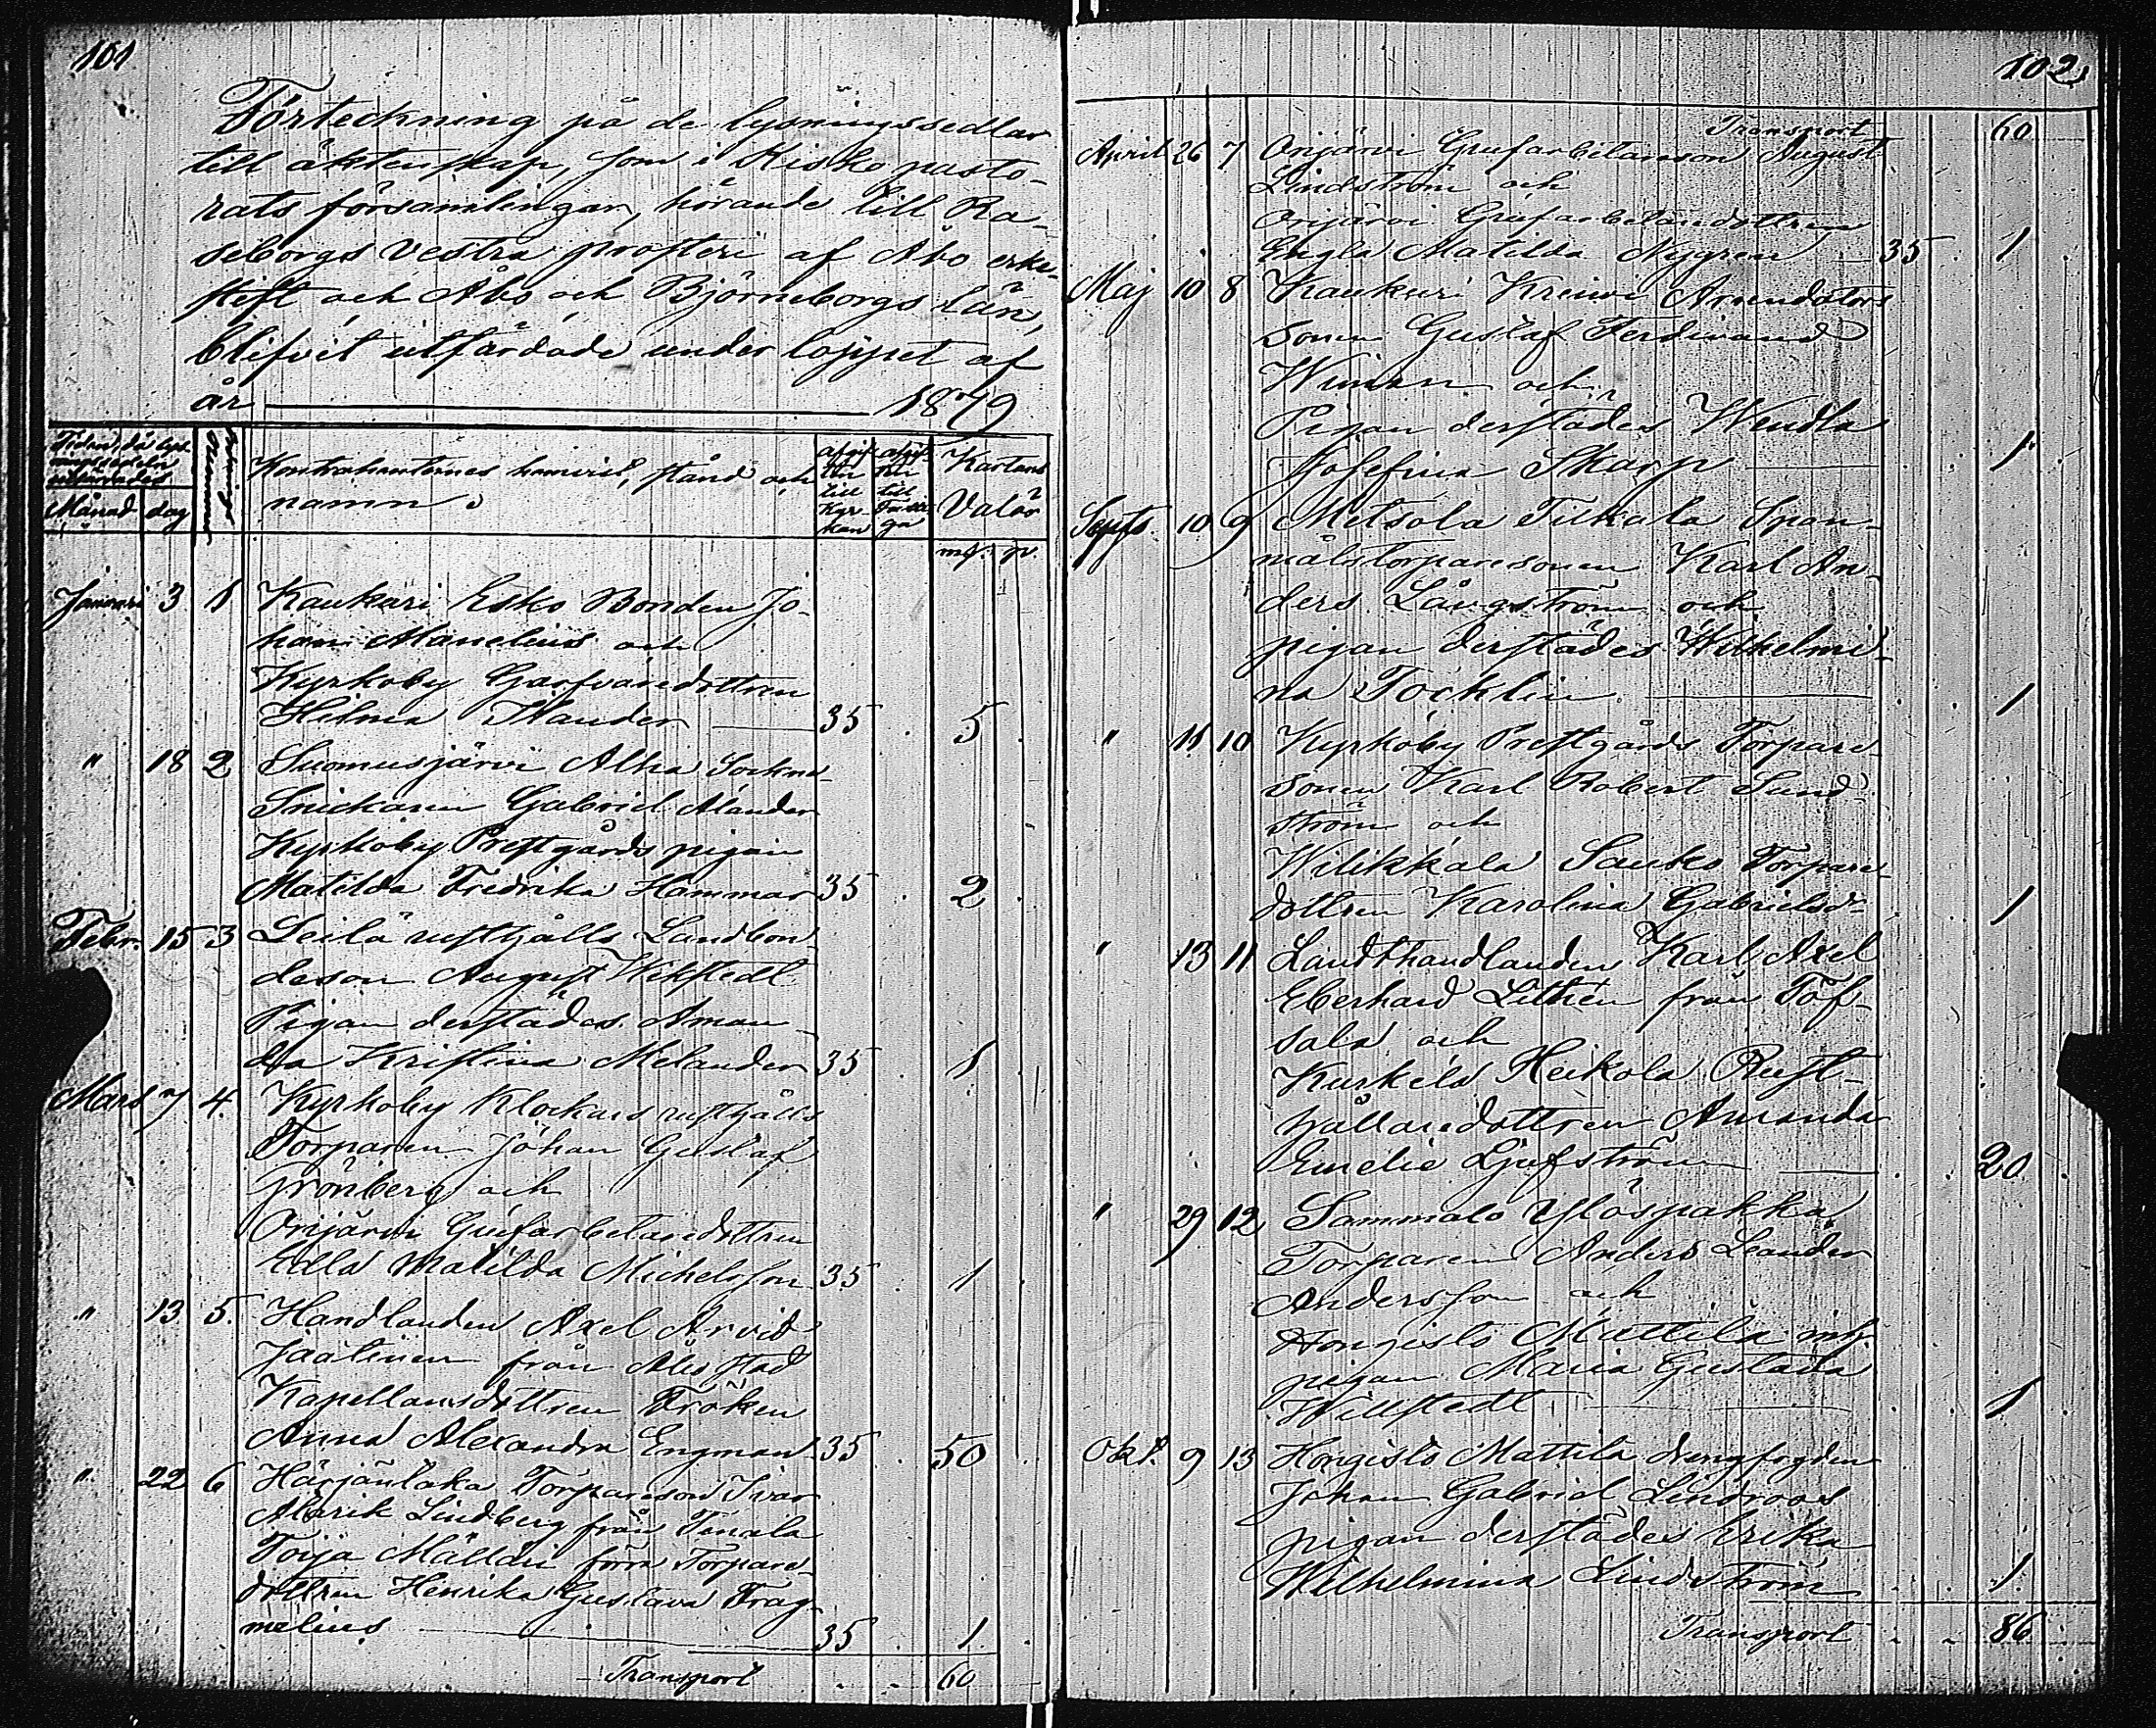 101
Förteckning på de lysningssedlar
till äktenskap, som i Kisko pasto-
rats församlingar, hörande till Ra-
seborgs Vestra prosteri af Åbo erke-
stift och Åbo och Björneborgs Län,
blifvit utfärdade under loppet af
år 1879
Månad dag
Kontrahenternas hemvist, stånd och
namn.
afgif-
ten
till
Kyr-
kan
afgif-
ten
till
Kartans
Valör
mk. p.
Januari 3 1 Kaukuri Esko Bonden Jo-
han Manelius och
Kyrkoby Garfvaredottren
Hilma Nander 35 5
" 18 2 Suomusjärvi Alha Sockne
Snickaren Gabriel Alander
Kyrkoby Prestgårds pigan
Matilda Fredrika Hammar 35 2
Febr. 15 3 Leilä rusthålls Landbon-
deson August Wikstedt
Pigan derstädes Aman-
da Kristina Melander 35 1
Mars 7 4. Kyrkoby Klockars rusthålls
Torparen Johan Gustaf
Grönberg och
Orijärvi Grufarbetaredottren
Edla Matilda Michelsson 35 1
" 13 5. Handlanden Axel Arvid
Jaalinen från Åbo stad
Kapellansdottren Fröken
Anna Alexandra Engman 35 50
" 22 6 Härjänlaka Torpareson Ivar
Alarik Lindberg från Tenala
Toija Mälläri förra Torpare-
dottren Henrika Gustava Frag-
melius 35 1
Transport 60
102
Transport 60
April 26 7 Orijärvi Grufarbetareson August
Lindström och
Orijärvi Grufarbetaredottren
Engla Matilda Nygren 35 1
Maj 10 8 Kaukuri Kreivi Arrendators
sonen Gustaf Ferdinand
Wimen och
Pigan derstädes Wendla
Josefina Skarp 1
Septb. 10 9 Metsola Tilkala Span-
målstorparesonen Karl An-
ders Långström och
pigan derstädes Wilhelmi-
na Tocklin 1
" 11 10 Kyrkoby Prestgårds Torpare
sonen Karl Robert Sand-
ström och
Wilikkala Sauko Torpare
dottren Karolina Gabrielsd. 1
" 13 11 Landthandlanden Karl Axel
Eberhard Lithén från Töf-
sala och
Kurkela Heikola Rust-
hållaredottren Amanda
Emelie Ljufström 20
" 29 12 Sammalo Ylöspakka
Torparen Anders Leander
Andersson och
Hongisto Mattila
pigan Maria Gustava
Willstedt 1
Okt. 9 13 Hongisto Mattila drengfogden
Johan Gabriel Lindroos
pigan derstädes Erika
Wilhelmina Lindström 1
Transport 86